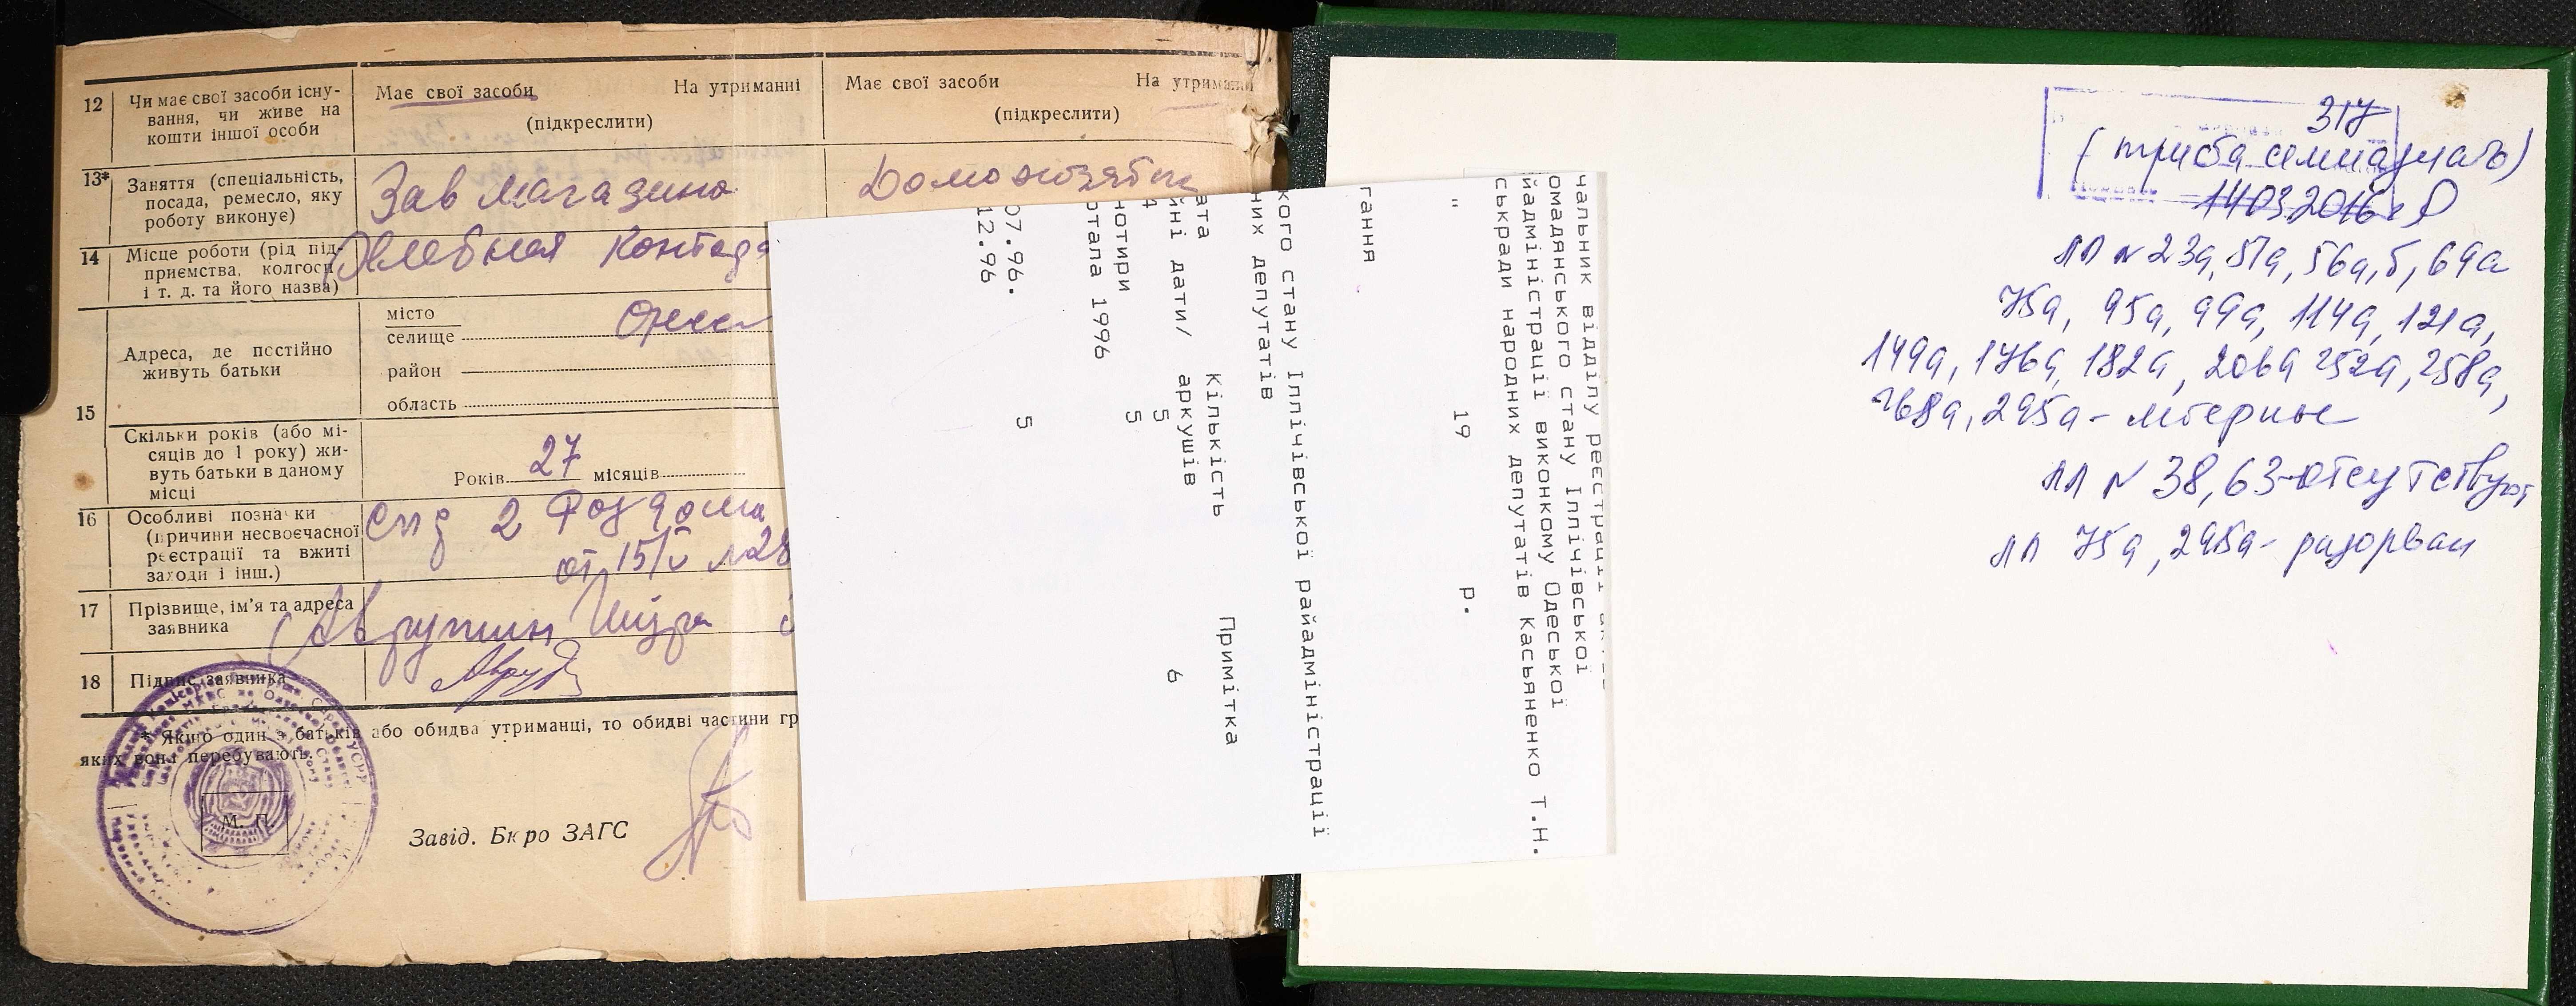 12 Чи має свої засоби існу-
вання, чи живе на
кошти іншої особи
Має свої засоби На утриманні
(підкреслити)
Має свої засоби На утриманні
(підкреслити)
13* Заняття (спеціальність,
посада, ремесло, яку
роботу виконує)
Зав магазина
Домохозяйка
14 Місце роботи (рід під-
приємства, колгосп
і т. д. та його назва)
Хлебная
15 Адреса, де постійно
живуть батьки
місто
селище
район
область
Скільки років (або мі-
сяців до 1 року) жи-
вуть батьки в даному
місці
Років 27 місяців
16 Особливі познаки
(причини несвоєчасної
реєстрації та вжиті
заходи і інш.)
2 Роддома
от 15/V №28
17 Прізвище, ім'я та адреса
заявника
Аврутин Шура
18 Підпис заявника
* Якщо один з батьків або обидва утриманці, то обидві частини гр
яких вони перебувають.
М. П.
Завід. Бюро ЗАГС
чальник відділу реєстрації
омадянського стану Іллічівської
йадміністрації виконкому Одеської
ськради народних депутатів Касьяненко Т.Н.
" 19 р.
гання
кого стану Іллічівської райадміністрації
них депутатів
ата Кількість Примітка
йні дати/ аркушів
4 5 6
нотири 5
отапа 1996
07.96. 5
12.96
317
(триста семнадцать)
14.03.2016г
лл № 23а, 51а, 56а,б, 69а
75а, 95а, 99а, 114а, 121а,
149а, 176а, 182а, 206а 252а, 258а,
268а, 295а - литерные
лл № 38, 63-отсутствуют
лл 75а, 295а - разорван